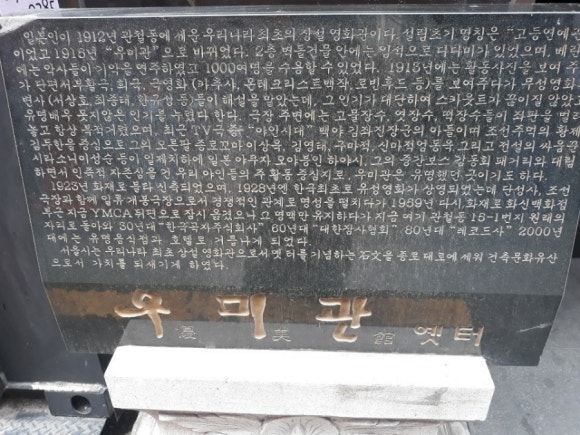 일본인이 1912년 관철동에 세운 우리나라 최초의 상설 영화관이다. 설립초기 명칭은 "고등연예관
이었고 1915년 "우미관"으로 바뀌었다. 2층 벽돌건물 안에는 일석으로 다다미가 있었으며,
에는 악사들이 기악을 연주하였고 1000여명을 수용할 수 있었다. 1915년에는 활동사진을 보여
가 단편서부활극, 희극, 극영화 (카츄사, 몽테크리스트백작, 로빈후드 등)를 보여주다가 무성영화
변사 (서상호, 최종태, 한유성 등)들이 해설을 맡았는데, 그 인기가 대단하여 스카웃트가
유명배우 못지않은 인기를 누렸다 한다. 극장 주변에는 고물장수, 엿장수, 떡장수들이 좌판을
놓고 항상 북적거렸으며, 최근 TV극 "야인시대" 백야 김좌진장군의 아들이며 조선주먹의 황제
김두한을 중심으로 그의 오른팔 중로꼬마 이상욱, 김영태, 구마적, 신마적엄동욱 그리고 전설의 싸움
시라소니이성순 등이 일제치하에 일본 야쿠자 오야붕인 하야시, 그의 중간보스 김동회 패거리와 대립
하면서 민족적 자존심을 건 우리 야인들의 주 활동 중심지로, 우미관은 유명했던 곳이기도 하다.
1923년 화재로 불타 신축되었으며, 1928년엔 한국최초로 유성영화가 상영되었는데 단성사, 조선
극장과 함께 일류 개봉극장으로서 경쟁적인 관계로 명성을 떨치다가 1959년 다시 화재로 화신백화점
부근 지금 YMCA 뒤편으로 잠시 옮겼으나 그 명맥만 유지하다가 지금 여기 관철동 15-1번지 원래의
자리로 돌아와 30년대 "한국곡자주식회사" 60년대 "대한장사협회" 80년대 "레코드사" 2000년
대에는 유명 음식점과 호텔로 거듭나게 되었다.
서울시는 우리나라 최초 상설 영화관으로서 옛터를 기념하는 石文을 종로 대로에 세워 건축문화유산
으로서 가치를 되새기게 하였다.
우미관 옛터
優美館